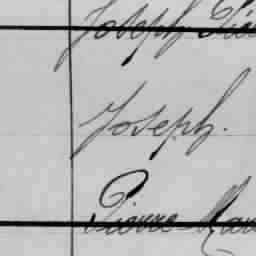 Joseph Pie
Joseph.
Pierre Mar